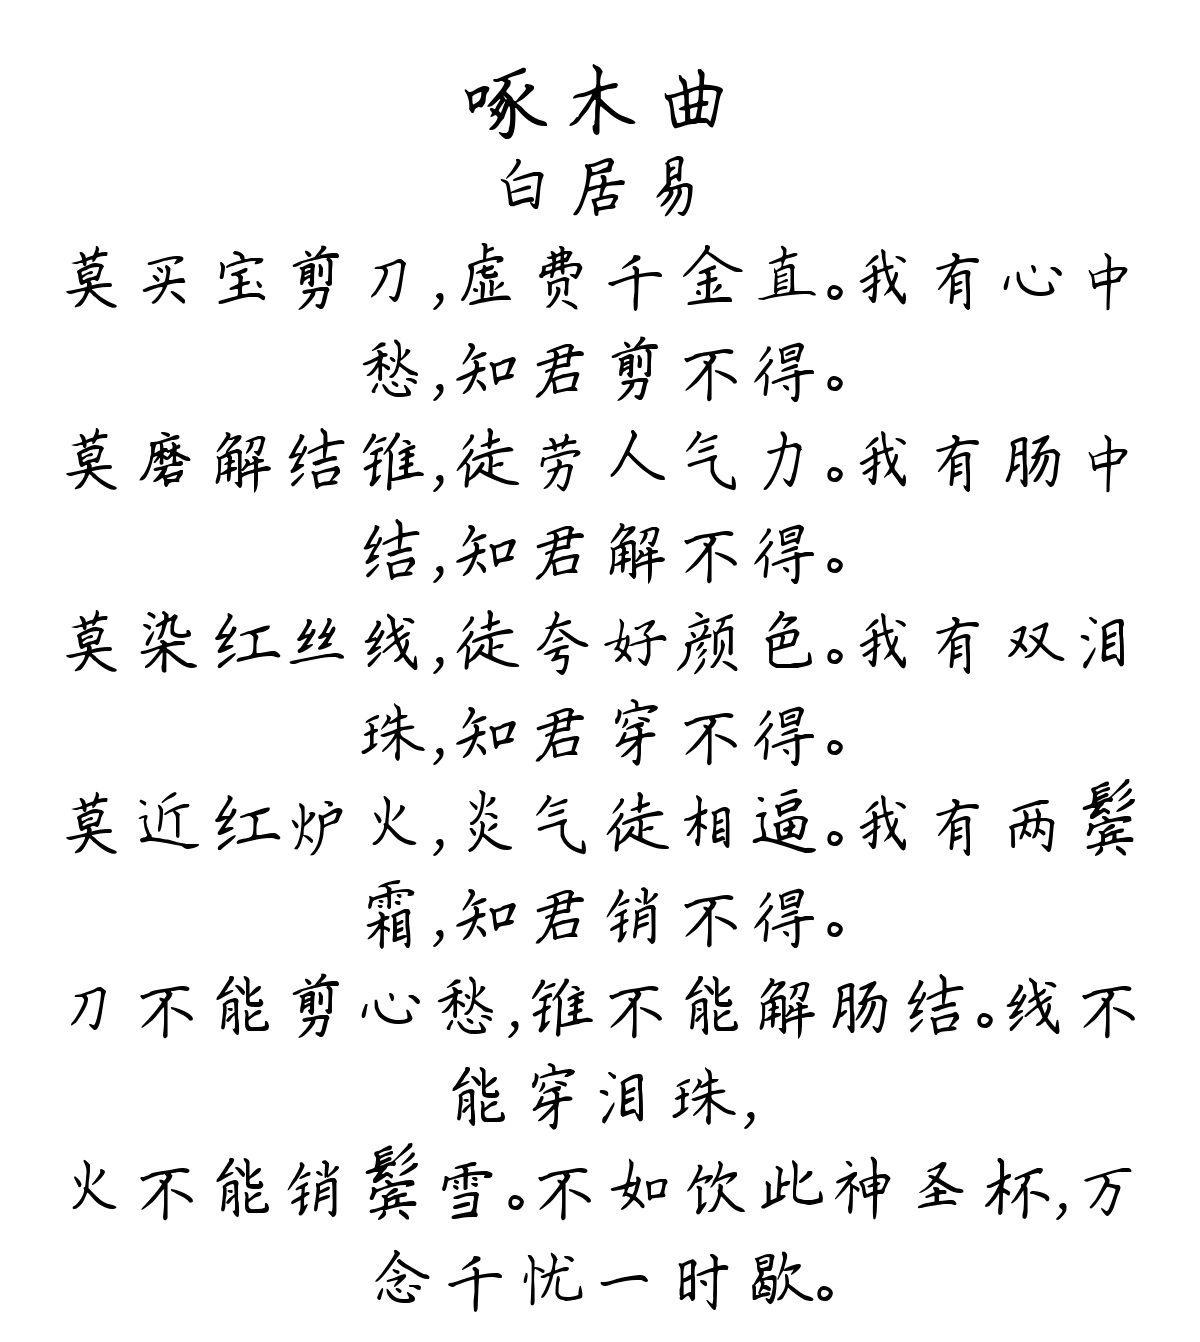 啄木曲
白居易
莫买宝剪刀,虚费千金直。我有心中
愁,知君剪不得。
莫磨解结锥,徒劳人气力。我有肠中
结,知君解不得。
莫染红丝线,徒夸好颜色。我有双泪
珠,知君穿不得。
莫近红炉火,炎气徒相逼。我有两鬓
霜,知君销不得。
刀不能剪心愁,锥不能解肠结。线不
能穿泪珠,
火不能销鬓雪。不如饮此神圣杯,万
念千忧一时歇。